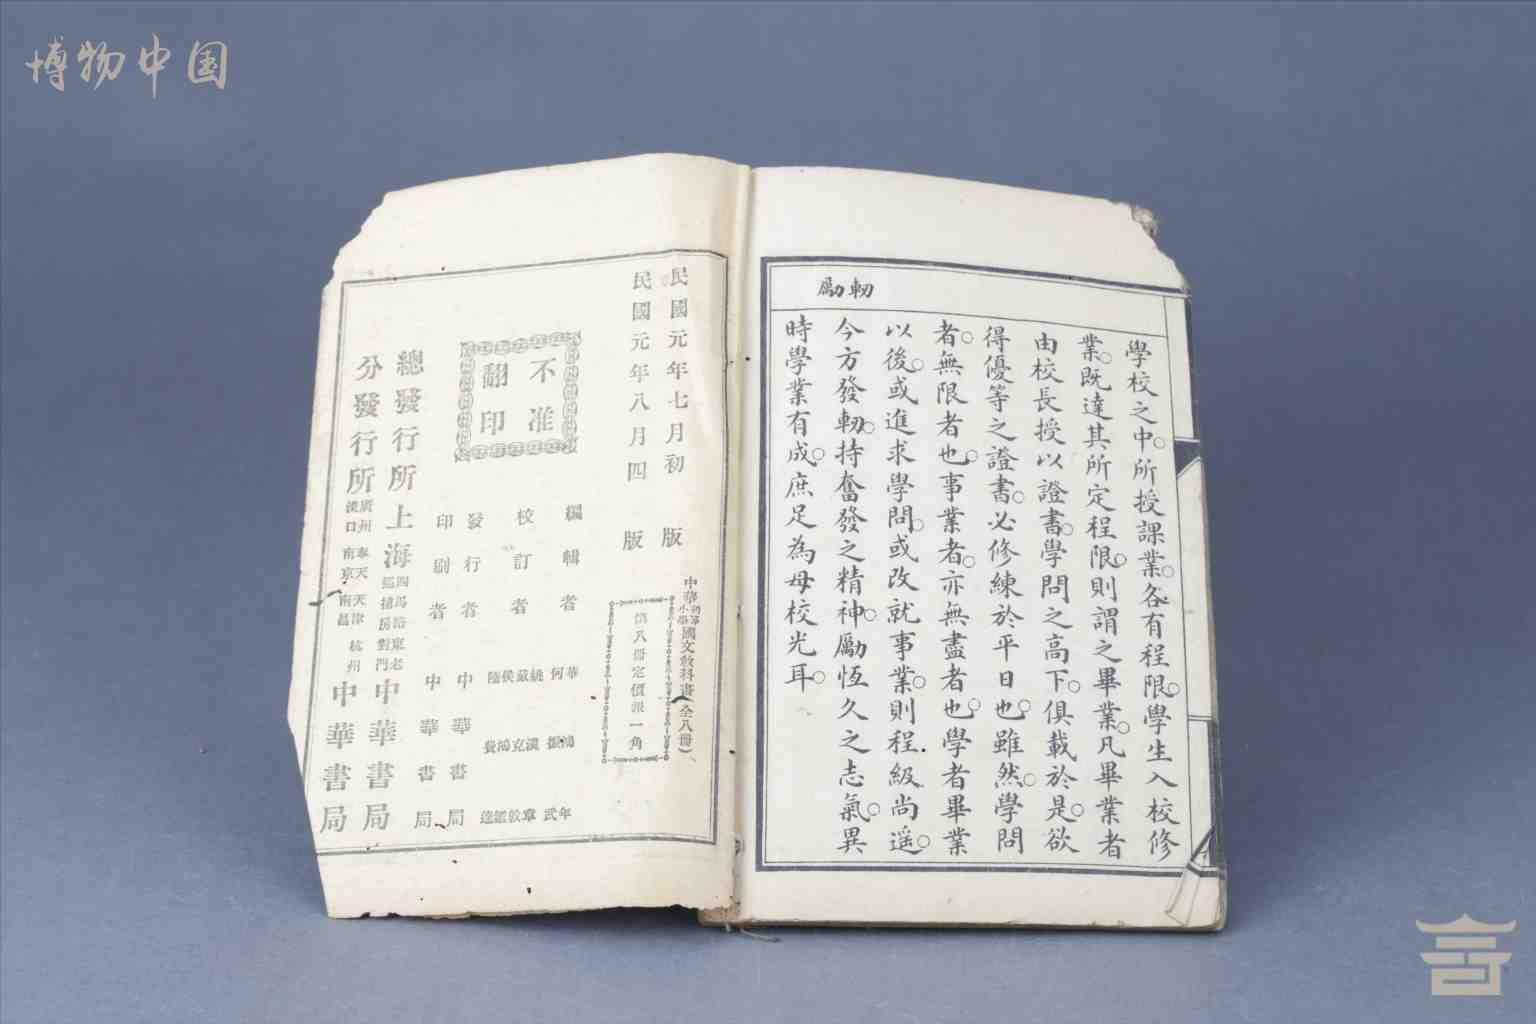 博物中国
軔勵
學校之中。所授課業。各有程限。學生入校修
業。既達其所定程限。則謂之畢業。凡畢業者
由校長授以證書。學問之高下。俱載於是。欲
得優等之證書。必修練於平日也。雖然。學問
者。無限者也。事業者。亦無盡者也。學者畢業
以後。或進求學問。或改就事業。則程級尚遥。
今方發軔。持奮發之精神。勵恆久之志氣。異
時學業有成。庶足為母校光耳。
民國元年七月初版
民國元年八月四版
中華初等小學國文敎科書(全八冊)
第八冊定價銀一角
不准翻印
編輯者
校訂者
發行者 中華書局
印刷者 中華書局
總發行所 上海 中華書局
分發行所 廣州 漢口 奉天 南京 天津 南昌 杭州 中華書局